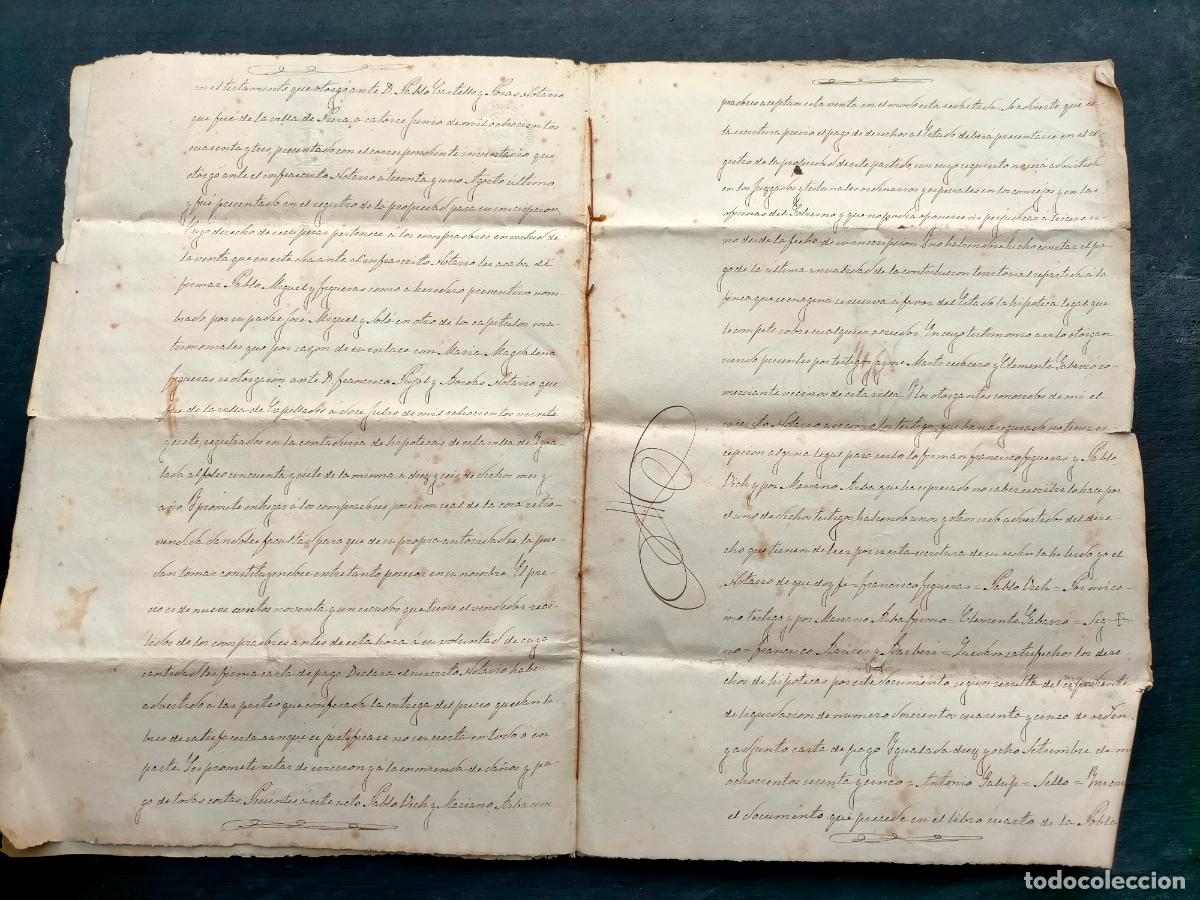 en el testamento que otorgó ante D. Pablo Castells y Poras Notario
que fué de la villa de Piera, a catorce Junio de mil ochocientos
cuarenta y tres, presentado con el correspondiente inventario que
otorgó ante el infraescrito Notario a treinta y uno Agosto último
y fué presentado en el registro de la propiedad para su inscripcion,
Cuyo derecho de recuperar pertenece á los compradores en virtud de
la venta que en este dia ante el infraescrito Notario les acaba de
firmar Pablo Miquel y Figueras como a heredero preventivo nom-
brado por su padre José Miquel y Solé en otro de los capitulos ma-
trimoniales que por razon de su enlace con Maria Magdalena
Figueras se otorgaron ante D. Francisco Pujol y Notario que
fué de la villa de á doce Julio de mil ochocientos veinte
y siete, registrados en la contaduria de hipotecas de esta villa de Igua
lada al folio cincuenta y siete de la misma a diez y seis de dichos mes y
año. Y promete entregar á los compradores posesion real de la cosa retro-
vendida dandoles facultad para que de su propia autoridad se la pue-
dan tomar constituyendose entre tanto poseer en su nombre. El pre-
cio es de nueve cientos noventa y un escudos que tiene el vendedor reci-
bidos de los compradores antes de esta hora a su voluntad de cuya
cantidad les firma carta de pago. Declara el suscrito Notario haber
advertido a las partes que confesada la entrega del precio quedan li-
bres de satisfacerla aunque se justificase no ser cierta en todo ó en
parte. Les promete estar de eviccion y á la inmienda de daños y pa-
go de todas costas. Presentes á este acto Pablo Vich y Mariano Riba com
pradores aceptan esta venta en el modo esta redactada. Se advierte que es-
ta escritura previo el pago de derechos al Estado debera presentarse en el re
gistro de la propiedad de este partido, sin cuyo requisito no sera admitida
en los Juzgados y tribunales ordinarios y especiales en los consejos y en las
oficinas del Gobierno y que no podra oponerse ni perjudicar a tercero si-
no desde la fecha de su inscripcion. Y no habiendose hecho constar el pa
go de la última anualidad de la contribucion territorial repartida á la
finca que se enagena se reserva á favor del Estado la hipoteca legal que
le compete sobre cualquier acreedor. En cuyo testimonio asi lo otorgan
siendo presentes por testigos Jaime Martí y Clemente Gabarro co-
merciante vecinos de esta villa. Y los otorgantes conocidos de mi el
suscrito Notario asi como los testigos, que han asegurado no tener es-
cepcion alguna legal para serlo lo firman Francisco Figueras y Pablo
Vich y por Mariano Riba que ha espresado no saber escribir lo hace por
el uno de dichos testigos habiendo unos y otros sido advertidos del dere-
cho que tienen de leer por si esta escritura de su orden la he leido yo el
Notario de que doy fe = Francisco Figueras = Pablo Vich = Por mi co-
mo testigo y por Mariano Riba firmo = Clemente Gabarro = Sig-E-
no = Francisco y Barbero = Quedan satisfechos los dere-
chos de hipotecas por este documento segun resulta del espediente
de liquidacion de numero doscientos cuarenta y cinco de orden.
y adjunto carta de pago Igualada diez y ocho Setiembre de m
ochocientos sesenta y cinco = Antonio = Sello =
el documento que precede en el libro cuarto de la Pobla
todocoleccion